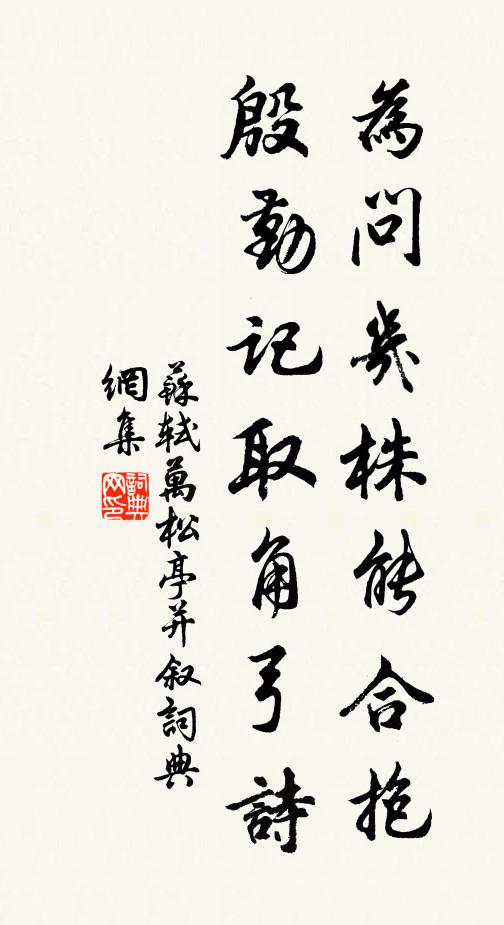 為問幾株能合抱
殷勤記取角弓詩
蘇軾萬松亭并叙詞典
網集
詞典
网印